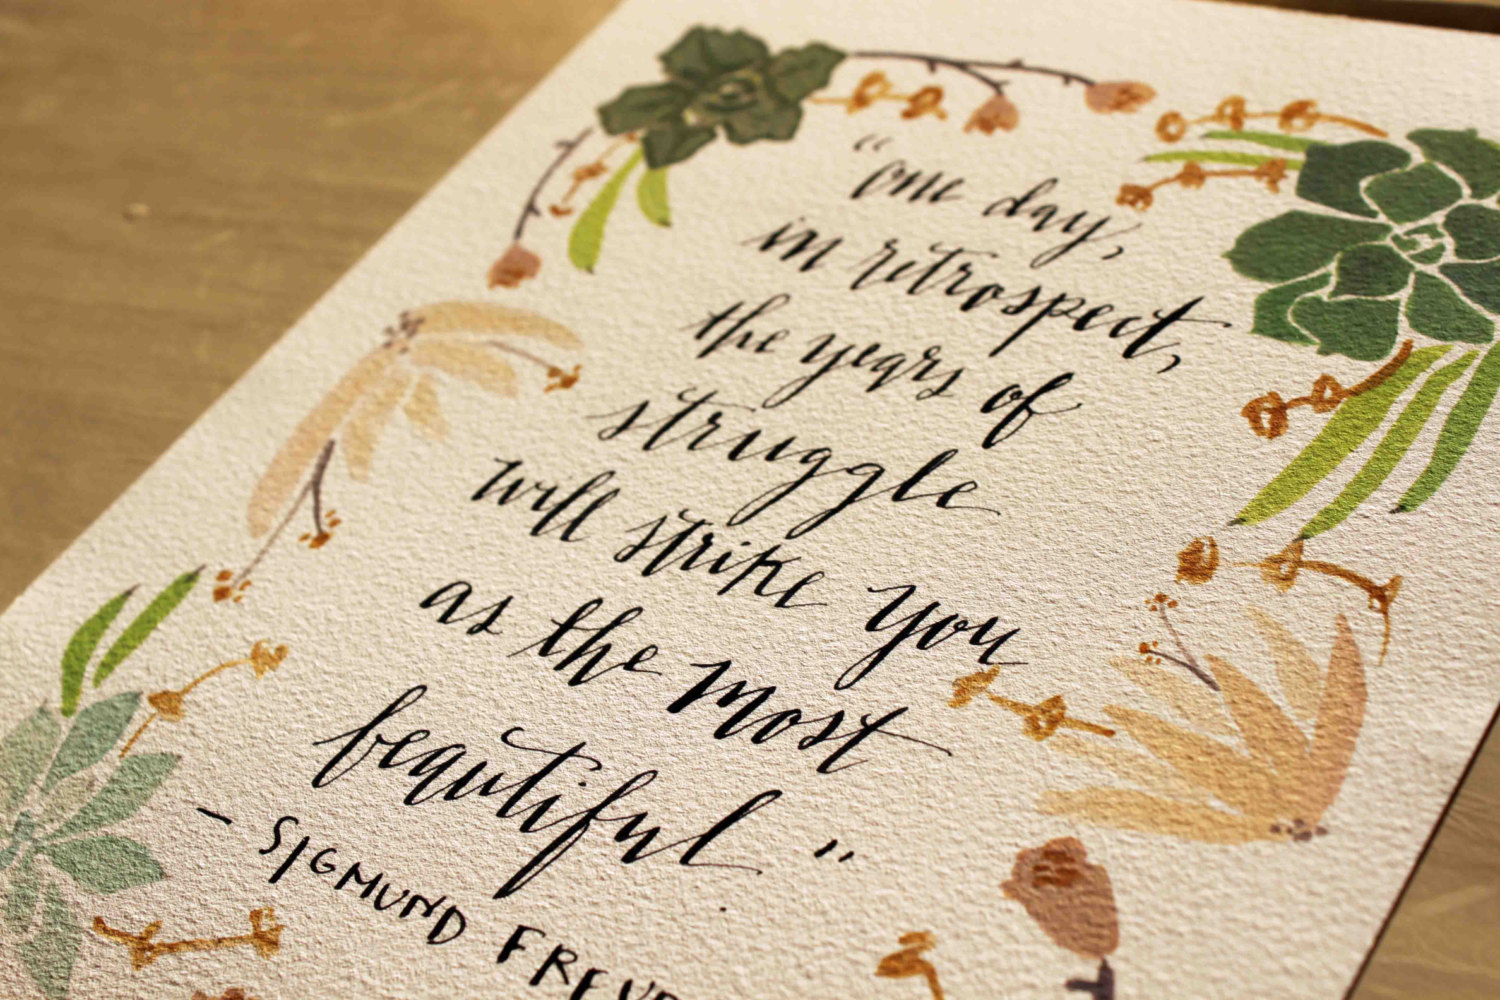 "one day,
in retrospect,
the years of
struggle
will strike you
as the most
beautiful"
- SIGMUND FREUD